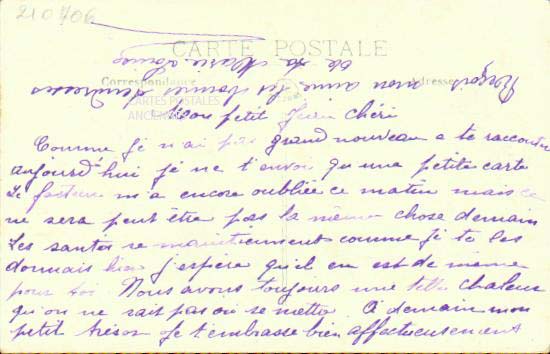 210706
CARTE POSTALE
Correspondance
Adresse
CARTES POSTALES
ANCIENNES
de ta Marie Louise
mon aimé les bonnes tendresses
Mon petit Jean chéri
Comme je n'ai pas grand nouveau a te raconter
aujourd'hui je ne t'envoi qu'une petite carte
Le facteur m'a encore oubliée ce matin mais ce
ne sera peut être pas la même chose demain
Les santés se maintiennent comme je te les
donnais hier j'espère qu'il en est de même
pour toi Nous avons toujours une telle chaleur
qu'on ne sait pas ou se mettre. A demain mon
petit trésor je t'embrasse bien affectueusement